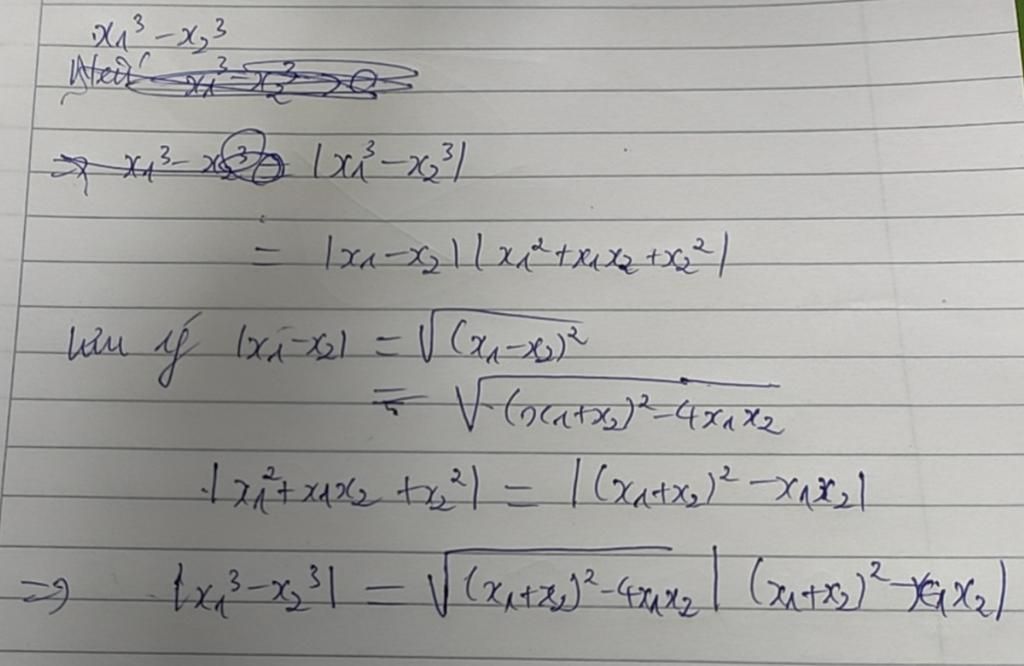 x₁³ - x₂³
x₁³ - x₂³ > 0
⇒ x₁³ - x₂³ |x₁³ - x₂³|
= |x₁ - x₂| |x₁² + x₁x₂ + x₂²|
Lưu ý |x₁ - x₂| = √(x₁ - x₂)²
= √(x₁ + x₂)² - 4x₁x₂
|x₁² + x₁x₂ + x₂²| = |(x₁ + x₂)² - x₁x₂|
⇒ |x₁³ - x₂³| = √(x₁ + x₂)² - 4x₁x₂ |(x₁ + x₂)² - x₁x₂|